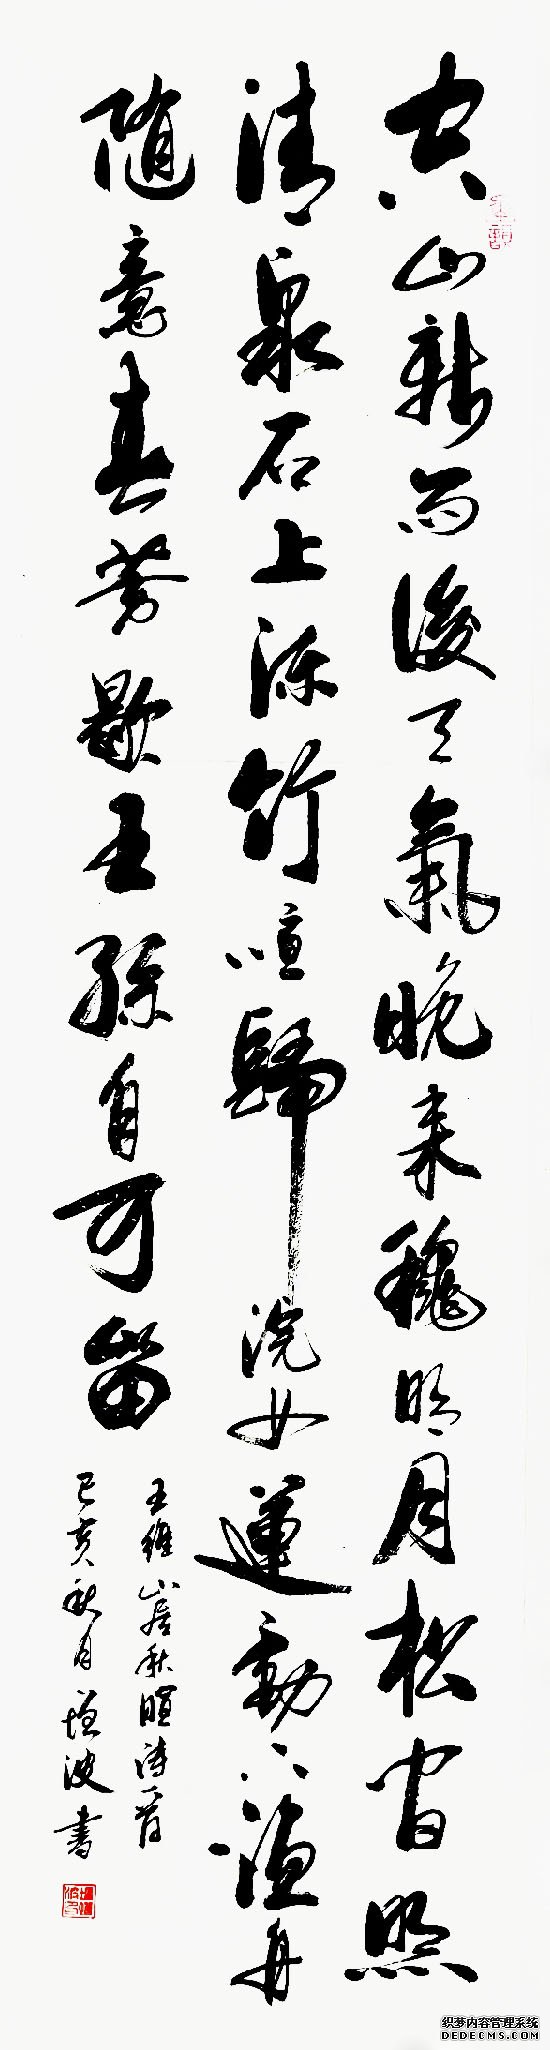 空山新雨後天氣晚来穐明月松間照
清泉石上流竹喧歸浣女蓮動下漁舟
隨意春芳歇王孫自可留
王維山居秋暝詩一首
己亥秋月增波書
织梦内容管理系统
DEDECMS.COM